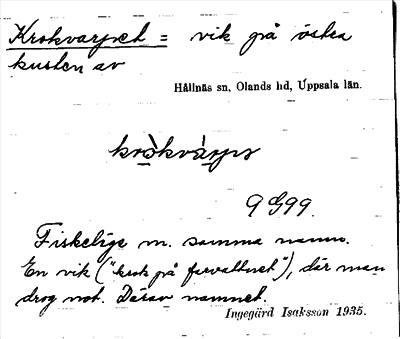 Krokvarpet = vik på östra
kusten av
Hållnäs sn, Olands hd, Uppsala län.
krò̱kvà̱rpə
9 G99.
Fiskeläge m. samma namn.
En vik ("krok på farvattnet"), där man
drog not. Därav namnet.
Ingegärd Isaksson 1935.